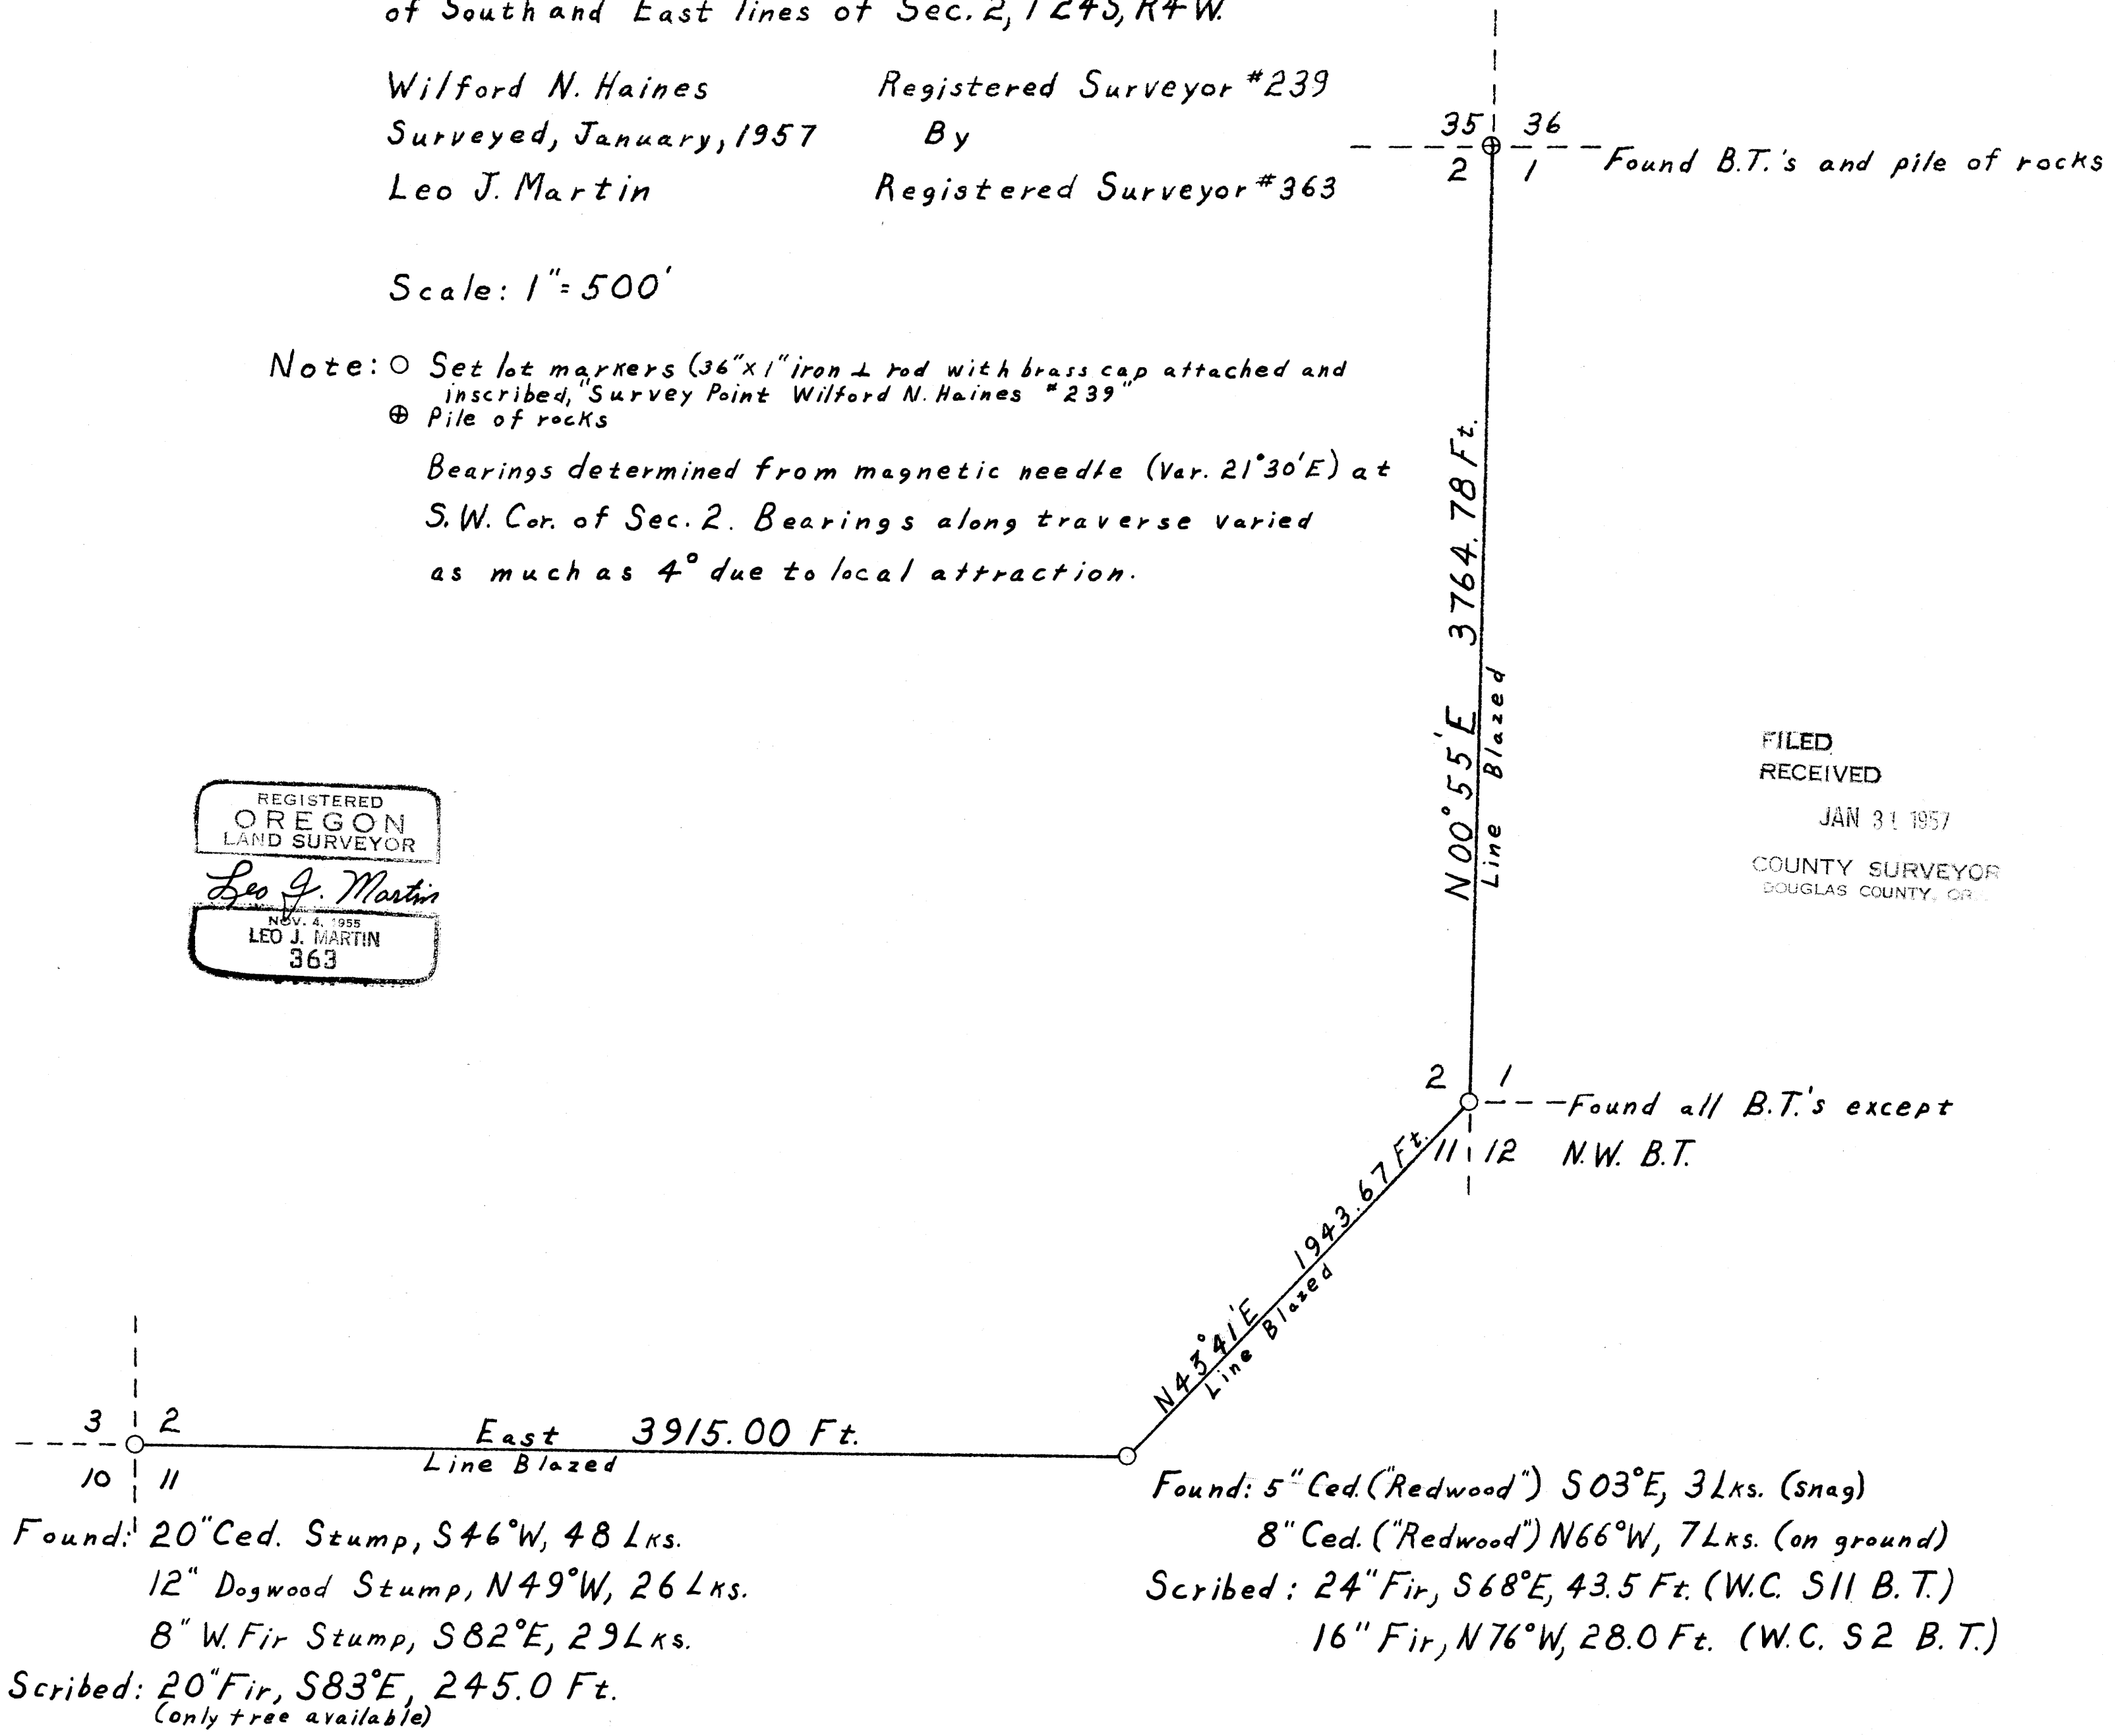 of South and East lines of Sec. 2, T24S, R4W.
Wilford N. Haines Registered Surveyor #239
Surveyed, January, 1957 By
Leo J. Martin Registered Surveyor #363
Scale: 1"= 500'
Note: O Set lot markers (36"x1" iron ⊥ rod with brass cap attached and
inscribed, "Survey Point Wilford N. Haines #239"
⊕ Pile of rocks
Bearings determined from magnetic needle (Var. 21°30'E) at
S.W. Cor. of Sec. 2. Bearings along traverse varied
as much as 4° due to local attraction.
35 36
2 1
Found B.T.'s and pile of rocks
N00°55'E 3764.78 Ft.
Line Blazed
REGISTERED
OREGON
LAND SURVEYOR
Leo J. Martin
NOV. 4, 1955
LEO J. MARTIN
363
FILED
RECEIVED
JAN 31 1957
COUNTY SURVEYOR
DOUGLAS COUNTY, OR.
2 1
Found all B.T.'s except
11 12 N.W. B.T.
N43°41'E 1943.67 Ft.
Line Blazed
3 2
10 11
East 3915.00 Ft.
Line Blazed
Found: 20" Ced. Stump, S46°W, 48 Lks.
12" Dogwood Stump, N49°W, 26 Lks.
8" W. Fir Stump, S82°E, 29 Lks.
Scribed: 20" Fir, S83°E, 245.0 Ft.
(only tree available)
Found: 5" Ced. ("Redwood") S03°E, 3 Lks. (snag)
8" Ced. ("Redwood") N66°W, 7 Lks. (on ground)
Scribed: 24" Fir, S68°E, 43.5 Ft. (W.C. S11 B.T.)
16" Fir, N76°W, 28.0 Ft. (W.C. S2 B.T.)